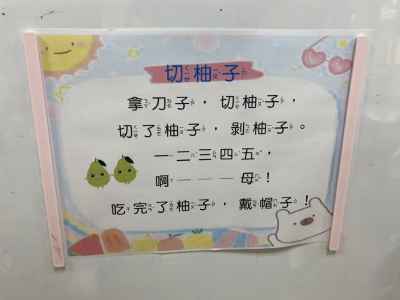 切柚子
拿刀子，切柚子，
切了柚子，剝柚子。
一二三四五，
啊———母！
吃完了柚子，戴帽子！